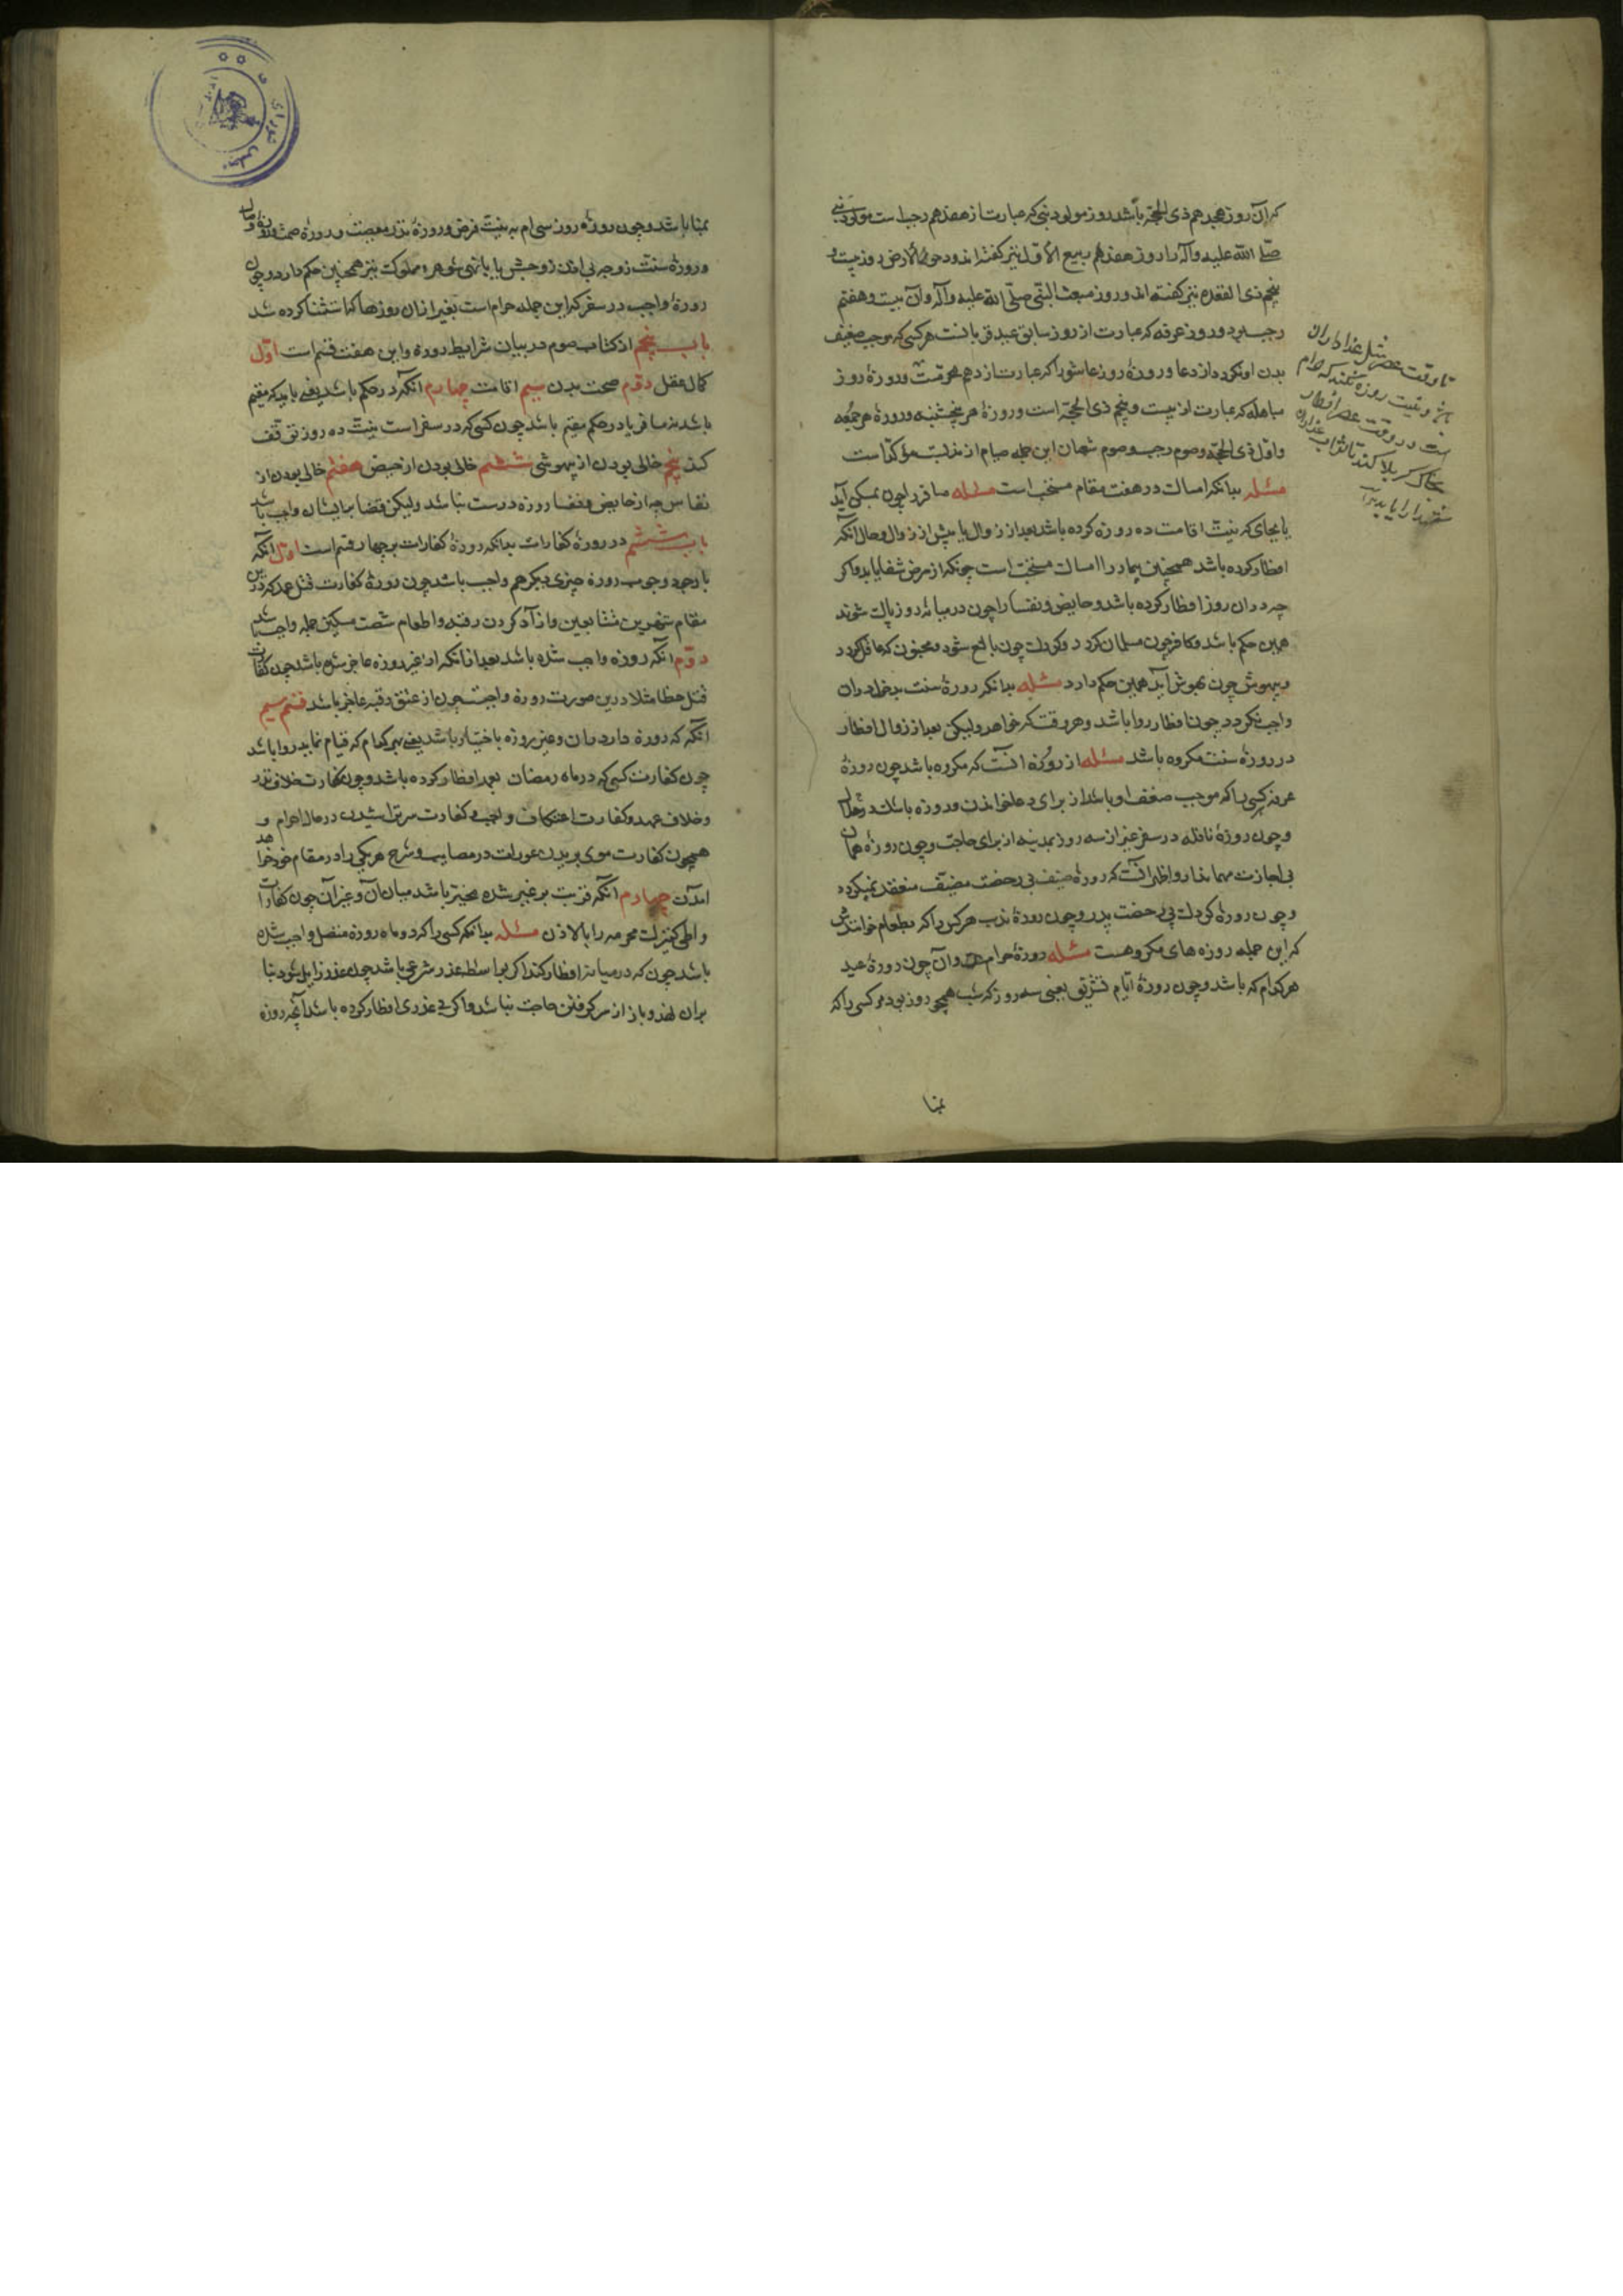 که آن روز هجدهم ذی الحجّه باشد روز مولود نبی که عبارت از هفدهم رجب است مولود نبی
صلّی الله علیه وآله را روز هفدهم ربیع الأوّل نیز گفته‌اند ودحو الأرض روز بیست و
پنجم ذی القعده نیز گفته‌اند وروز مبعث النّبی صلّی الله علیه وآله وآن بیست وهفتم
رجب بود وروز عرفه که عبارت از روز سابق عید قربانست هر کسی که موجب ضعیف
بدن او نگردد از دعا وروزهٔ روز عاشورا که عبارت از دهم محرّمست وروزهٔ روز
مباهله که عبارت از بیست وپنجم ذی الحجّه است وروزهٔ هر پنجشنبه وروزهٔ هر جمعه
واوّل ذی الحجّه وصوم رجب وصوم شعبان این جمله صیام از مذلّت مؤکّد است
مسئله بدانکه امساک در هفت مقام مستحب است مسئله مسافر را چون بمسکن آید
یا بجای که نیّت اقامت ده روزه کرده باشد بعد از زوال یا پیش از زوال وحال آنکه
افطار کرده باشد همچنین بیمار را امساک مستحبّ است چونکه از مرض شفا یابد واگر
چه در آن روز افطار کرده باشد وحایض ونفسا را چون در میانهٔ روز پاک شوند
همین حکم باشد وکافر چون مسلمان گردد وکودک چون بالغ شود ومجنون که عاقل گردد
وبیهوش چون بهوش آید همین حکم دارد مسئله بدانکه روزهٔ سنّت بدخول در آن
واجب نگردد چون افطار روا باشد وهر وقت که خواهد ولیکن بعد از زوال افطار
در روزهٔ سنّت مکروه باشد مسئله از روزه آنست که مکروه باشد چون روزهٔ
عرفه کسی را که موجب ضعف او باشد از برای دعا خواندن وروزه باشک در هلال
وچون روزهٔ نافله در سفر غیر از سه روز بمدینه از برای حاجت وچون روزهٔ مهمان
بی اجازت مهماندار واظهر آنست که روزهٔ ضیف بی رخصت مضیّف منعقد نمیگردد
وچون روزهٔ کودک بی رخصت پدر وچون روزهٔ ندب هر کس را که بطعام خوانندش
که این جمله روزه های مکروهست مسئله روزهٔ حرام وآن چون روزهٔ عید
هر کدام که باشد وچون روزهٔ ایّام تشریق یعنی سه روز که شب همچو روز بود مر کسی را که
بمنا
تا وقت عصر مثل عذاداران
باشد ونیّت روزه نکند که حرام
است ودر وقت عصر افطار
بخاک کربلا کند تا ثواب عذاداران
بمنا باشد وچون روزهٔ روز سی ام به نیّت فرض وروزهٔ نذر معصیت وروزهٔ صمت وروزهٔ وصال
وروزهٔ سنّت زوجه بی اذن زوجش یا با نهی شوهر ومملوک نیز همچنین حکم دارد وچون
روزهٔ واجب در سفر که این جمله حرام است بغیر از آن روزها که استثنا کرده شد
باب پنجم از کتاب صوم در بیان شرایط روزه واین هفت قسم است اوّل
کمال عقل دوّم صحت بدن سیم اقامت چهارم آنکه در حکم باشد یعنی باید که مقیم
باشد نه مسافر یا در حکم مقیم باشد چون کسی که در سفر است بنیّت ده روز توقّف
کند پنجم خالی بودن از بیهوشی ششم خالی بودن از حیض هفتم خالی بودن از
نفاس چه از حایض ونفسا روزه درست نباشد ولیکن قضا بر ایشان واجب باشد
باب ششم در روزهٔ کفارات بدانکه روزهٔ کفارات بر چهار قسم است اوّل آنکه
با وجود وجوب روزه چیزی دیگر هم واجب باشد چون روزهٔ کفارت قتل عمد که در این
مقام شهرین متتابعین وآزاد کردن رقبه واطعام شصت مسکین جمله واجب باشد
دوّم آنکه روزه واجب شده باشد بعد از آنکه از غیر روزه عاجز شده باشد چون کفّارت
قتل خطا مثلا درین صورت روزه واجبست چون از عتق رقبه عاجز باشد قسم سیم
آنکه که روزه دارد میان وغیر روزه با ختیار باشد یعنی بهر کدام که قیام نماید روا باشد
چون کفارت کسی که در ماه رمضان بعمد افطار کرده باشد وچون کفارت خلاف نذر
وخلاف عهد وکفارت اعتکاف واجب وکفارت سر تراشیدن در حال احرام و
همچون کفارت موی بریدن عورات در مصایب وشرح هر یکی را در مقام خود خواهد
آمدن چهارم آنکه مرتّب بر غیر شده مخیّر باشد میان آن وغیر آن چون کفارات
واطی کنیزک محرمه را بالاذن مسئله بدانکه کسی را که دو ماه روزه متصل واجب شده
باشد چون که در میانه افطار کند اگر بواسطهٔ عذر شرعی باشد چون عذر زایل شود بنا
بر آن نهد وباز از سر گرفتن حاجت نباشد واگر بی عذری افطار کرده باشد آنچه روزه